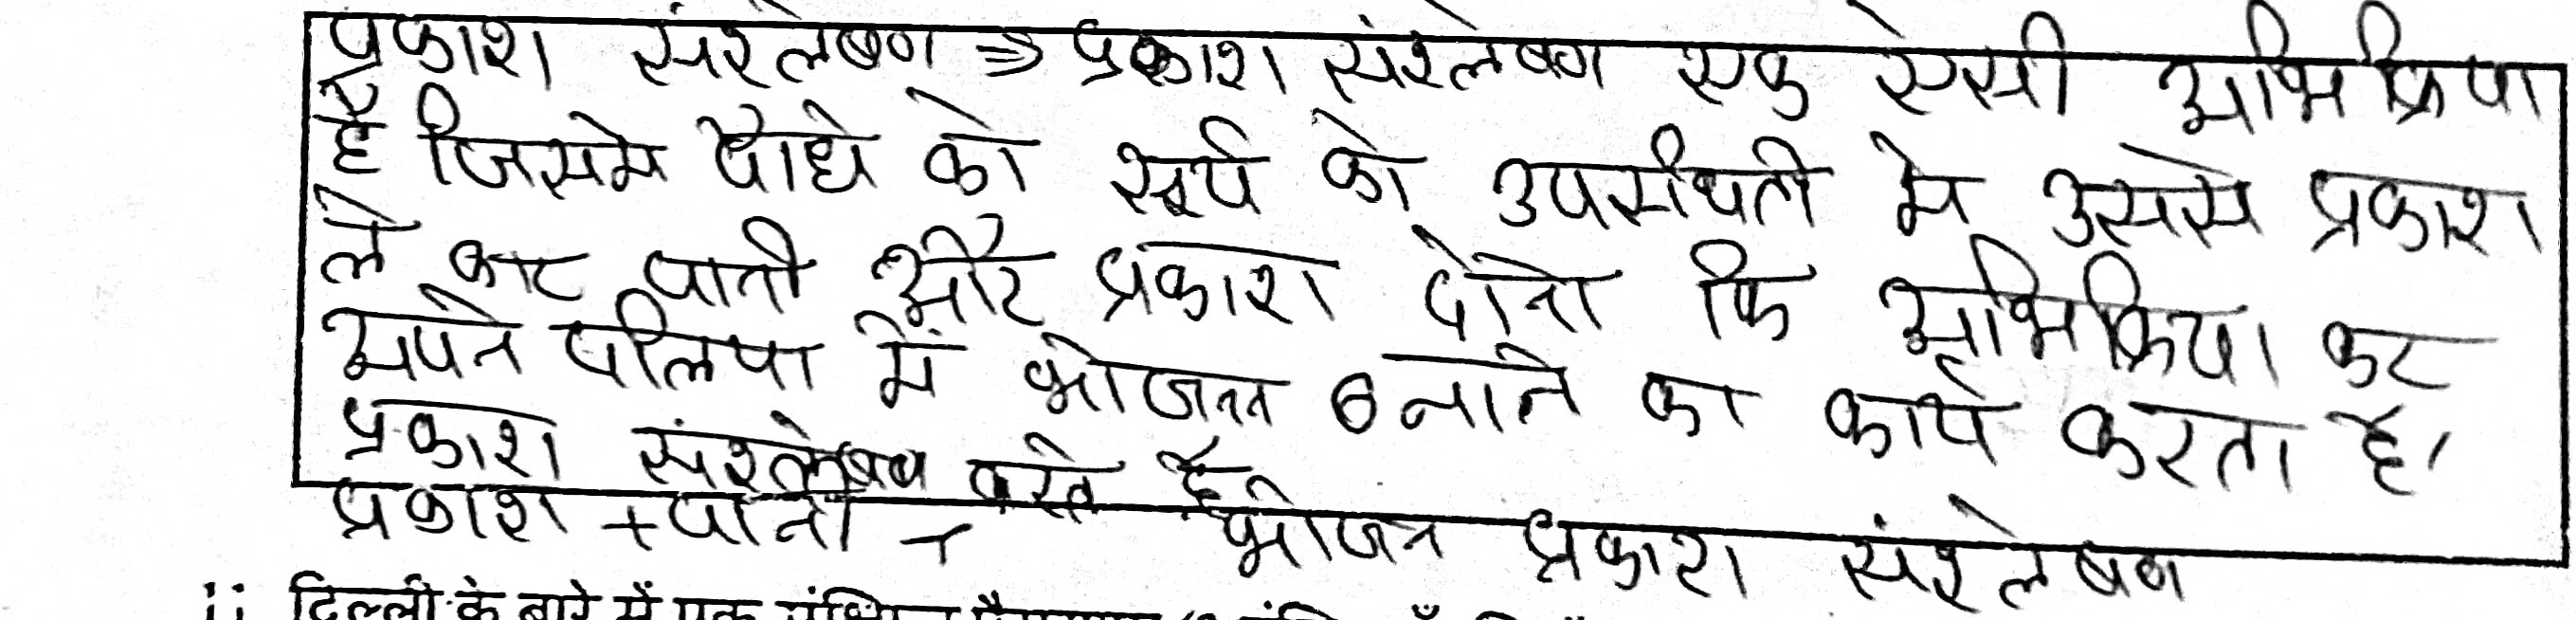 प्रकाश संश्लेषण ⇒ प्रकाश संश्लेषण एक ऐसी अभिक्रिया
है जिसमे पौधे को सूर्य को उपस्थिती मे उससे प्रकाश
ले कर पानी और प्रकाश दोनो कि अभिक्रिया कर
अपने पत्तिया में भोजन बनाने का कार्य करता है।
प्रकाश संश्लेषण करते है
प्रकाश + पानी → भोजन प्रकाश संश्लेषण
ii दिल्ली के बारे में एक